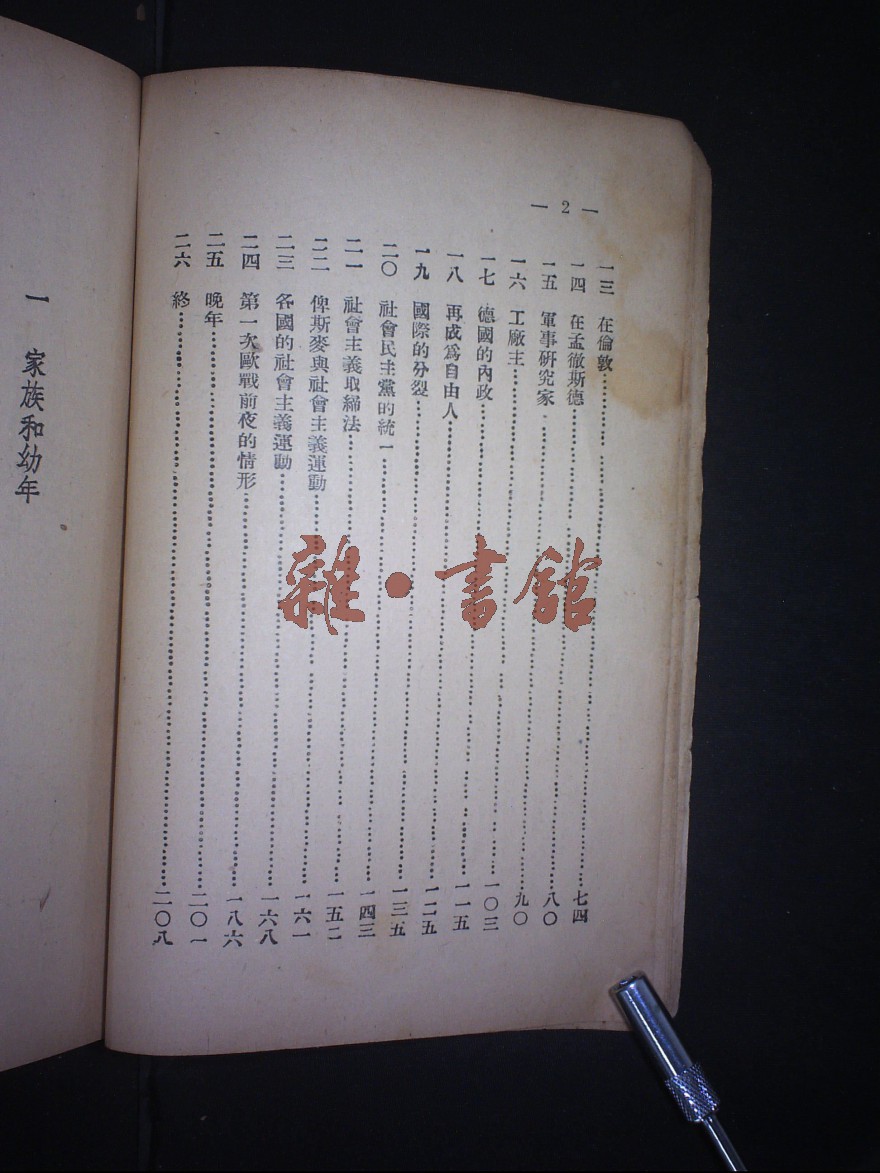 — 2 —
一三 在倫敦……七四
一四 在孟徹斯德……八〇
一五 軍事研究家……九〇
一六 工廠主……一〇三
一七 德國的內政……一一五
一八 再成爲自由人……一二五
一九 國際的分裂……一三五
二〇 社會民主黨的統一……一四三
二一 社會主義取締法……一五二
二二 俾斯麥與社會主義運動……一六一
二三 各國的社會主義運動……一六八
二四 第一次歐戰前夜的情形……一八六
二五 晚年……二〇一
二六 終……二〇八
一 家族和幼年
雜·書館